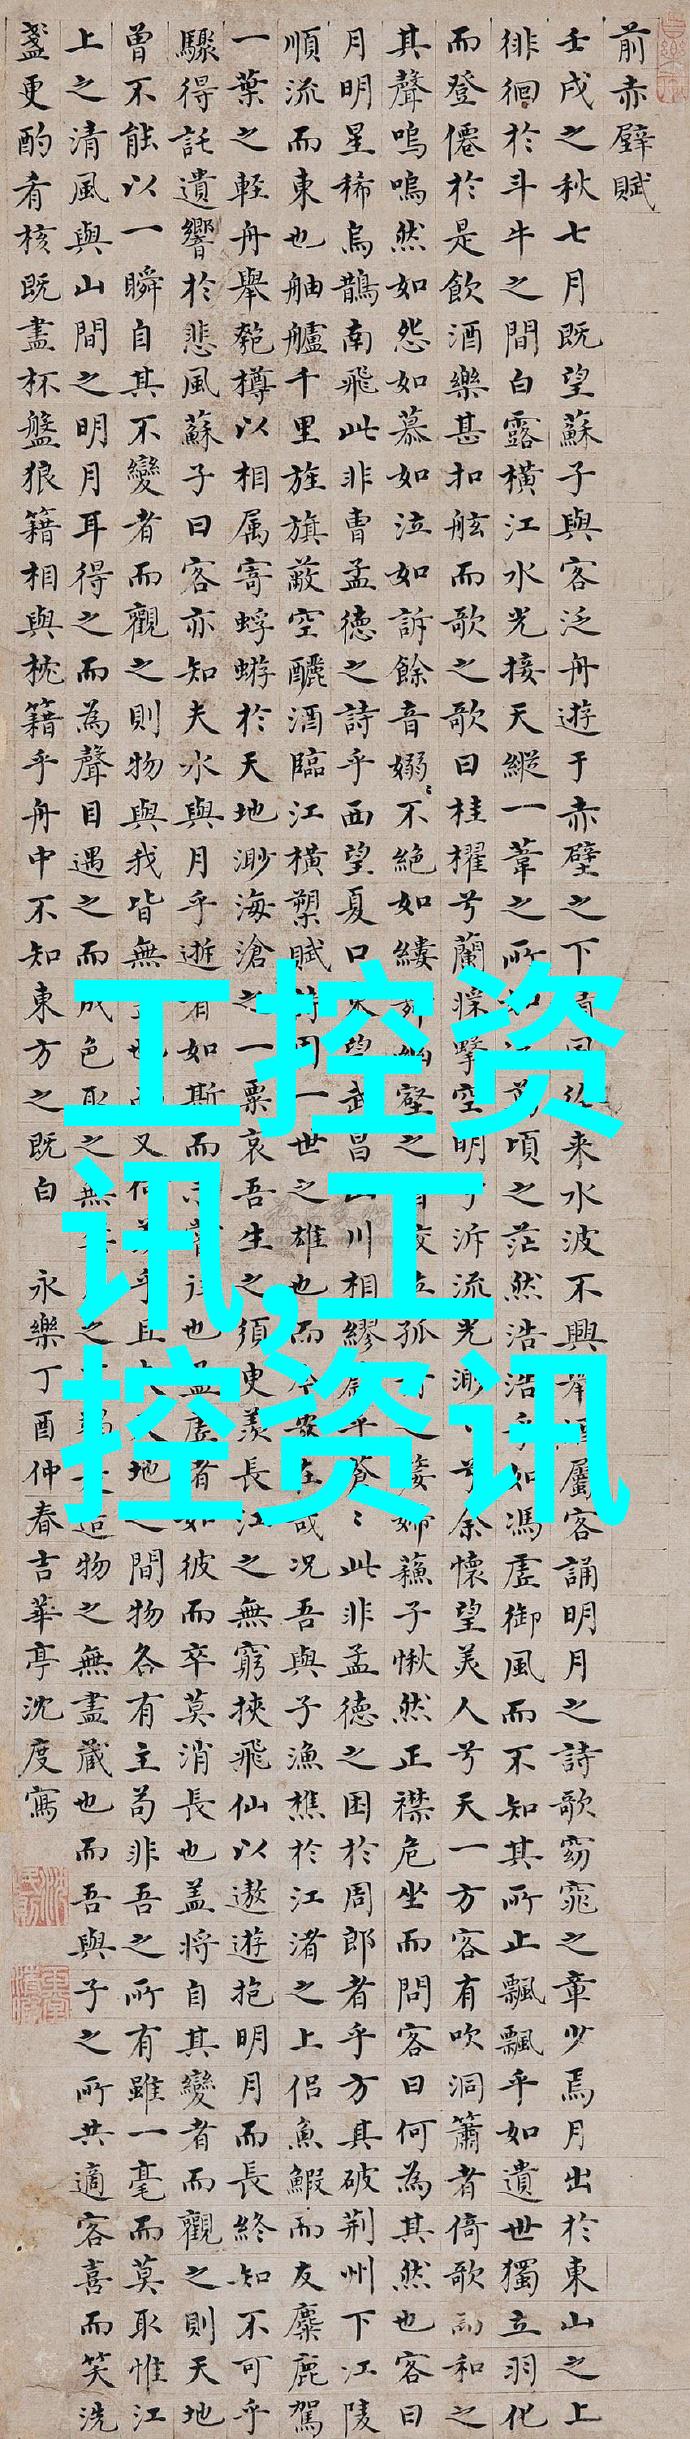 前赤壁賦
壬戌之秋七月既望蘇子與客泛舟遊于赤壁之下清風徐来水波不興舉酒屬客誦明月之詩歌窈窕之章少焉月出於東山之上
徘徊於斗牛之間白露橫江水光接天縱一葦之所如萬頃之茫然浩浩乎如馮虛御風而不知其所止飄飄乎如遺世獨立羽化
而登僊於是飲酒樂甚扣舷而歌之歌曰桂櫂兮蘭槳擊空明兮泝流光渺〻兮余懷望美人兮天一方客有吹洞簫者倚歌而和之
其聲嗚嗚然如怨如慕如泣如訴餘音嫋〻不絕如縷舞幽壑之潛蛟泣孤舟之嫠婦蘇子愀然正襟危坐而問客曰何為其然也客曰
月明星稀烏鵲南飛此非曹孟德之詩乎西望夏口東望武昌山川相繆鬱乎蒼〻此非孟德之困於周郎者乎方其破荆州下江陵
順流而東也舳艫千里旌旗蔽空釃酒臨江橫槊賦詩固一世之雄也而今安在哉况吾與子漁樵於江渚之上侶魚鰕而友麋鹿駕
一葉之輕舟舉匏樽以相属寄蜉蝣於天地渺海滄之一粟哀吾生之須臾羨長江之無窮挾飛仙以遨遊抱明月而長終知不可乎
驟得託遺響於悲風蘇子曰客亦知夫水與月乎逝者如斯而未嘗往也盈虛者如彼而卒莫消長也盖將自其變者而觀之則天地
曾不能以一瞬自其不變者而觀之則物與我皆無盡也而又何羨乎且夫天地之間物各有主苟非吾之所有雖一毫而莫取惟江
上之清風與山間之明月耳得之而為聲目遇之而成色取之無禁用之不竭是造物之無盡藏也而吾與子之所共適客喜而笑洗
盞更酌肴核既盡杯盤狼籍相與枕籍乎舟中不知東方之既白 永樂丁酉仲春吉華亭沈度寫
工控资
讯,工
控资讯